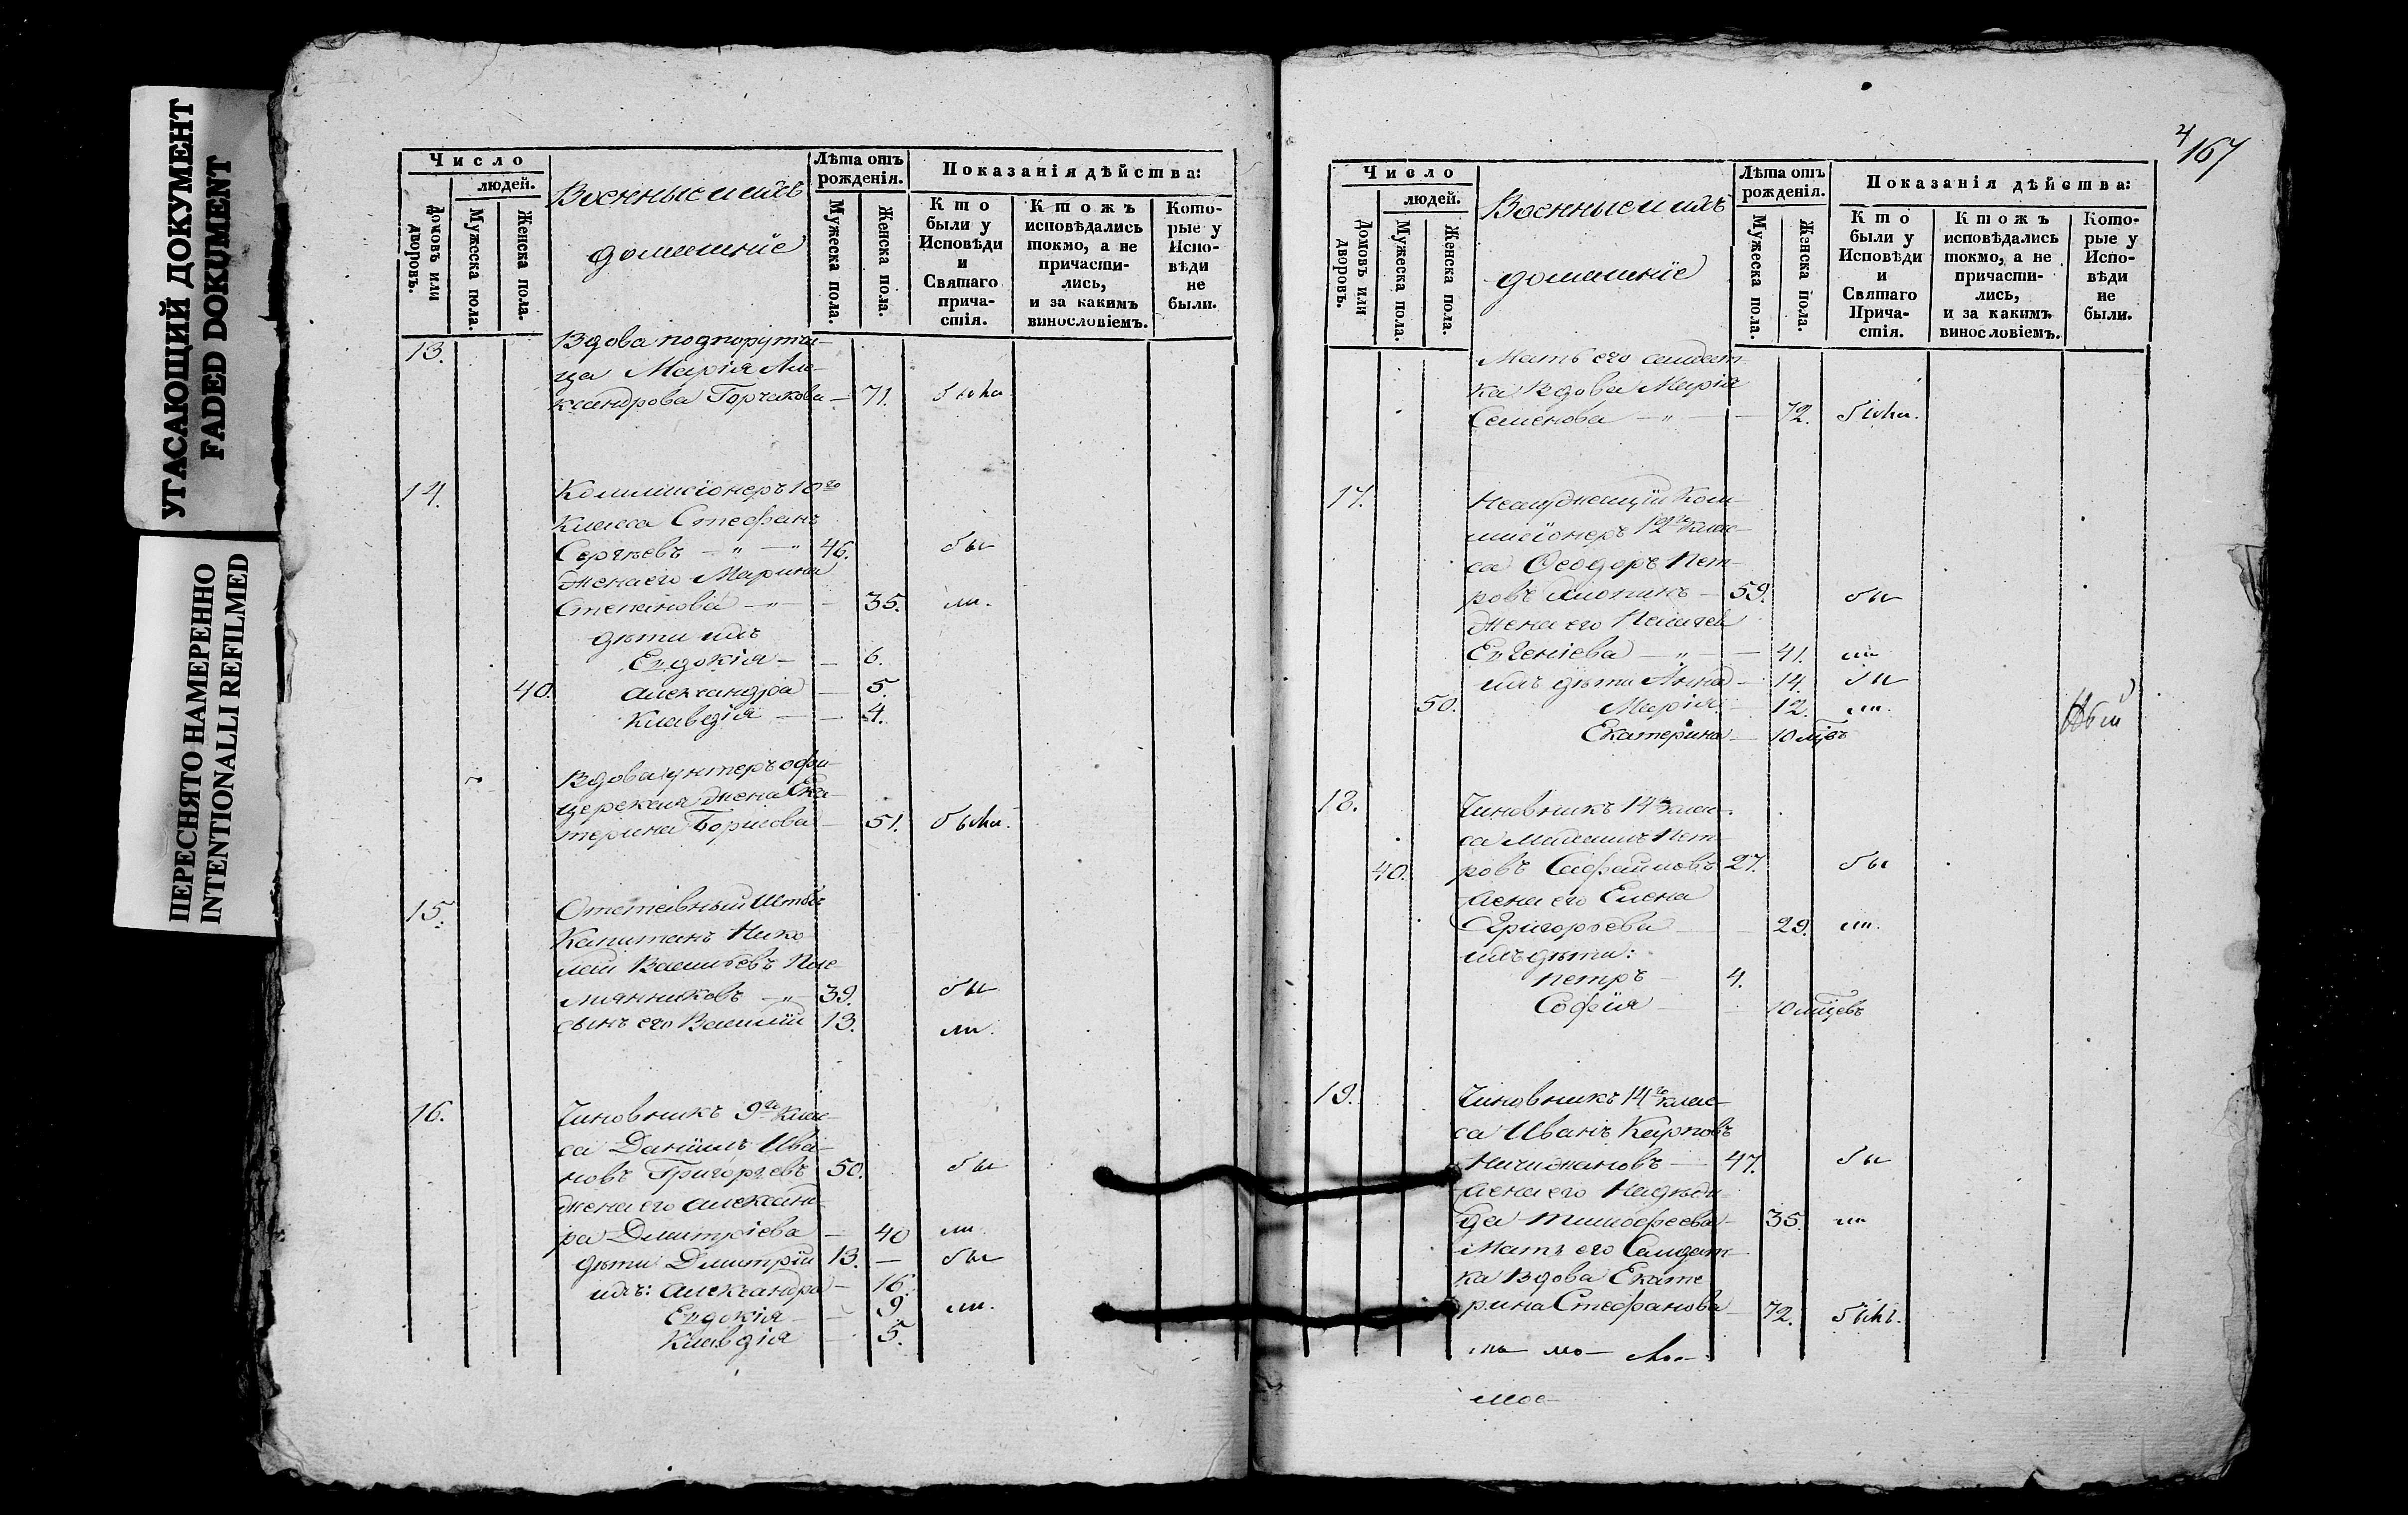 УГАСАЮЩИЙ ДОКУМЕНТ
FADED DOKUMENT
ПЕРЕСНЯТО НАМЕРЕННО
INTENTIONALLI REFILMED
Число
людей.
Домовъ или дворовъ.
Мужеска пола.
Женска пола.
Военные и ихъ
домашніе
Лѣта отъ рожденія.
Мужеска пола.
Женска пола.
Показанія дѣйства:
Кто были у Исповѣди и Святаго причастія.
Ктожъ исповѣдались токмо, а не причастились, и за какимъ винословіемъ.
Которые у Исповѣди не были.
13. Вдова подпорутчи-
ца Марія Але-
ксандрова Горчакова — 71. была
14. Коммисіонеръ 10го
класса Стефанъ
Сергѣевъ — " — " 46. бы
жена его Марина
Степанова — " — 35. ли.
дѣти ихъ
Евдокія — — 6.
40. Александра — 5.
Клавдія — — 4.
Вдова унтеръ офи-
церская жена Ека-
терина Борисова — 51. была.
15. Отставный Штабъ
Капитанъ Нико
лай Васильевъ Пле-
мянниковъ — " — 39. бы
сынъ его Василій 13. ли.
16. Чиновникъ 9го клас-
са Даніилъ Ива-
новъ Григорьевъ 50. бы
жена его Александ-
ра Дмитріева — 40 ли.
дѣти Дмитрій 13. — бы
ихъ: Александра — 16.
Евдокія — — 9. ли.
Клавдія — 5.
4
167
Число
людей.
Домовъ или дворовъ.
Мужеска пола.
Женска пола.
Военные и ихъ
домашніе
Лѣта отъ рожденія.
Мужеска пола.
Женска пола.
Показанія дѣйства:
Кто были у Исповѣди и Святаго Причастія.
Ктожъ исповѣдались токмо, а не причастились, и за какимъ винословіемъ.
Которые у Исповѣди не были.
Мать его салдат-
ка Вдова Марія
Семенова — " — — 72. была.
17. Неслужащій Ком-
мисіонеръ 12го клас-
са Ѳеодоръ Пет-
ровъ — 59. бы
жена его Пелагея
Евгеніева — " — — 41. ли
ихъ дѣти Анна — 14. бы
50. Марія — 12. ли.
Екатерина — 10 мцъ
18. Чиновникъ 14 клас-
са Пет-
40. ровъ 27. бы
жена его Елена
Григорьева — — 29. ли.
ихъ дѣти:
Петръ — 4.
Софія — 10 мцевъ
19. Чиновникъ 14го клас-
са Иванъ Карповъ
— 47. бы
жена его Надеж-
да Тимофеева — 35. ли
Мать его Салдат-
ка Вдова Екате
рина Стефанова — 72. была.